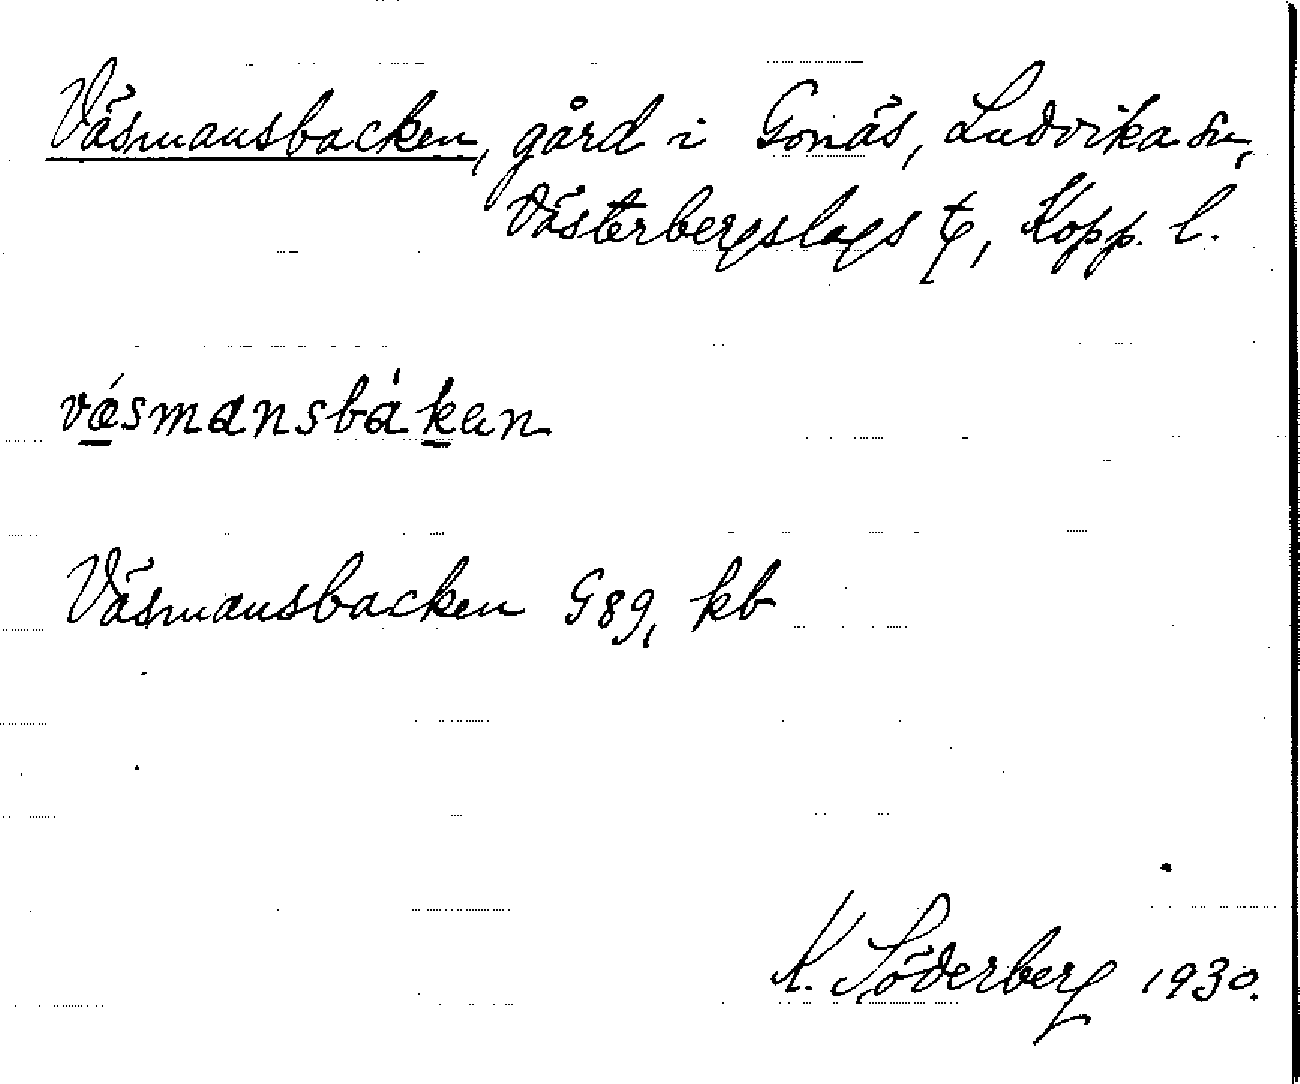 Väsmansbacken, gård i Gonäs, Ludvika sn,
Västerbergslags tg, Kopp. l.
vǽsmansbàkan
Väsmansbacken G89, kb
K. Söderberg 1930.